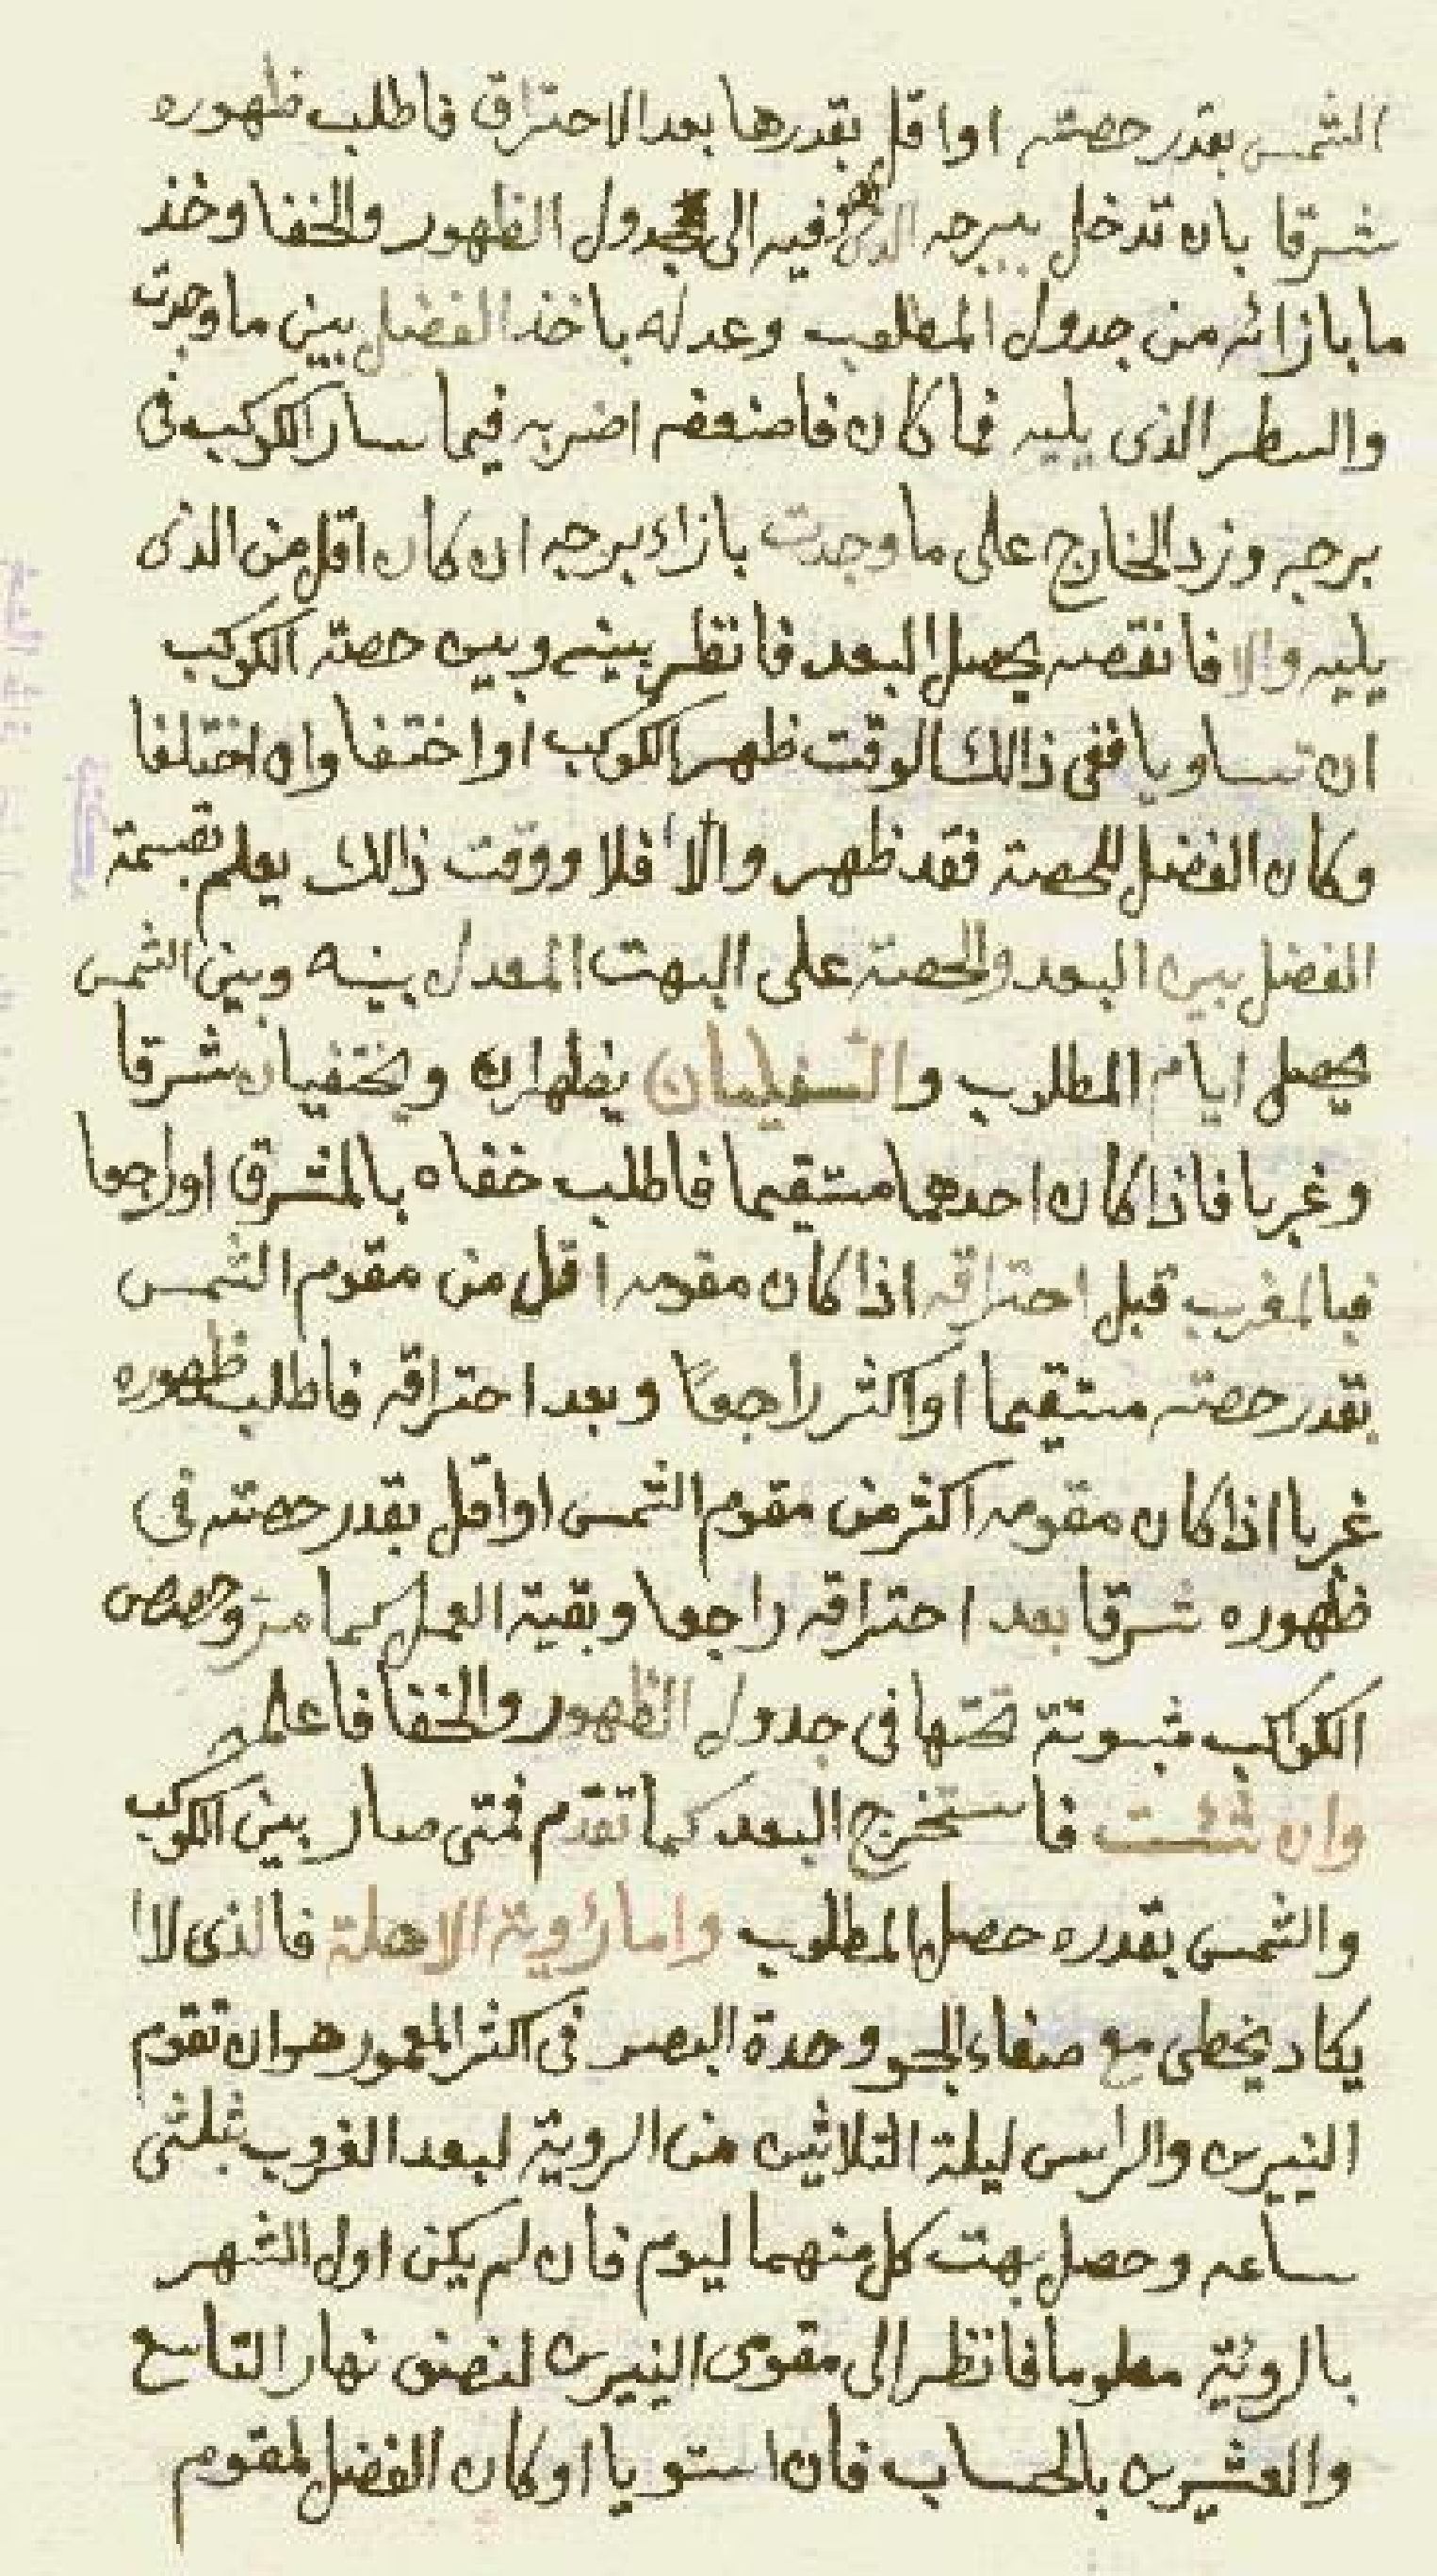 الشمس بقدر حصته او اقل بقدرها بعد الاحتراق فاطلب ظهوره
شرقا بان تدخل ببرجه الذى هو فيه الى جدول الظهور والخفا وخذ
ما بازائه من جدول المطلوب وعدله باخذ الفضل بين ما وجدت
والسطر الذى يليه فما كان فاضعفه اضربه فيما سار الكوكب فى
برجه وزد الخارج على ما وجدت بازاء برجه ان كان اقل من الذى
يليه والا فانقصه يحصل البعد فانظر بينه وبين حصة الكوكب
ان تساويا ففى ذالك الوقت ظهر الكوكب او اختفا وان اختلفا
وكان الفضل للحصة فقد ظهر والا فلا ووقت ذالك يعلم بقسمة
الفضل بين البعد والحصة على البهت المعدل بينه وبين الشمس
يحصل ايام المطلوب والسفليان يظهران ويختفيان شرقا
وغربا فاذا كان احدهما مستقيما فاطلب خفاه بالمشرق او راجعا
فبالمغرب قبل احتراقه اذا كان مقومه اقل من مقوم الشمس
بقدر حصته مستقيما او اكثر راجعا وبعد احتراقه فاطلب ظهوره
غربا اذا كان مقومه اكثر من مقوم الشمس او اقل بقدر حصته فى
ظهوره شرقا بعد احتراقه راجعا وبقية العمل كما مر وحصص
الكواكب مثبوتة تحتها فى جدول الظهور والخفا فاعلمه
وان شئت فاستخرج البعد كما تقدم فمتى صار بين الكوكب
والشمس بقدره حصل المطلوب واما رؤية الاهلة فالذى لا
يكاد يخطى مع صفاء الجو وحدة البصر فى اكثر المعمور هو ان تقوم
النيرين والراس ليلة الثلاثين من الروية لبعد الغروب بثلثى
ساعه وحصل بهت كل منهما ليوم فان لم يكن اول الشهر
بالروئية معلوما فانظر الى مقومى النيرين لنصف نهار التاسع
والعشرين بالحساب فان استويا او كان الفضل لمقوم